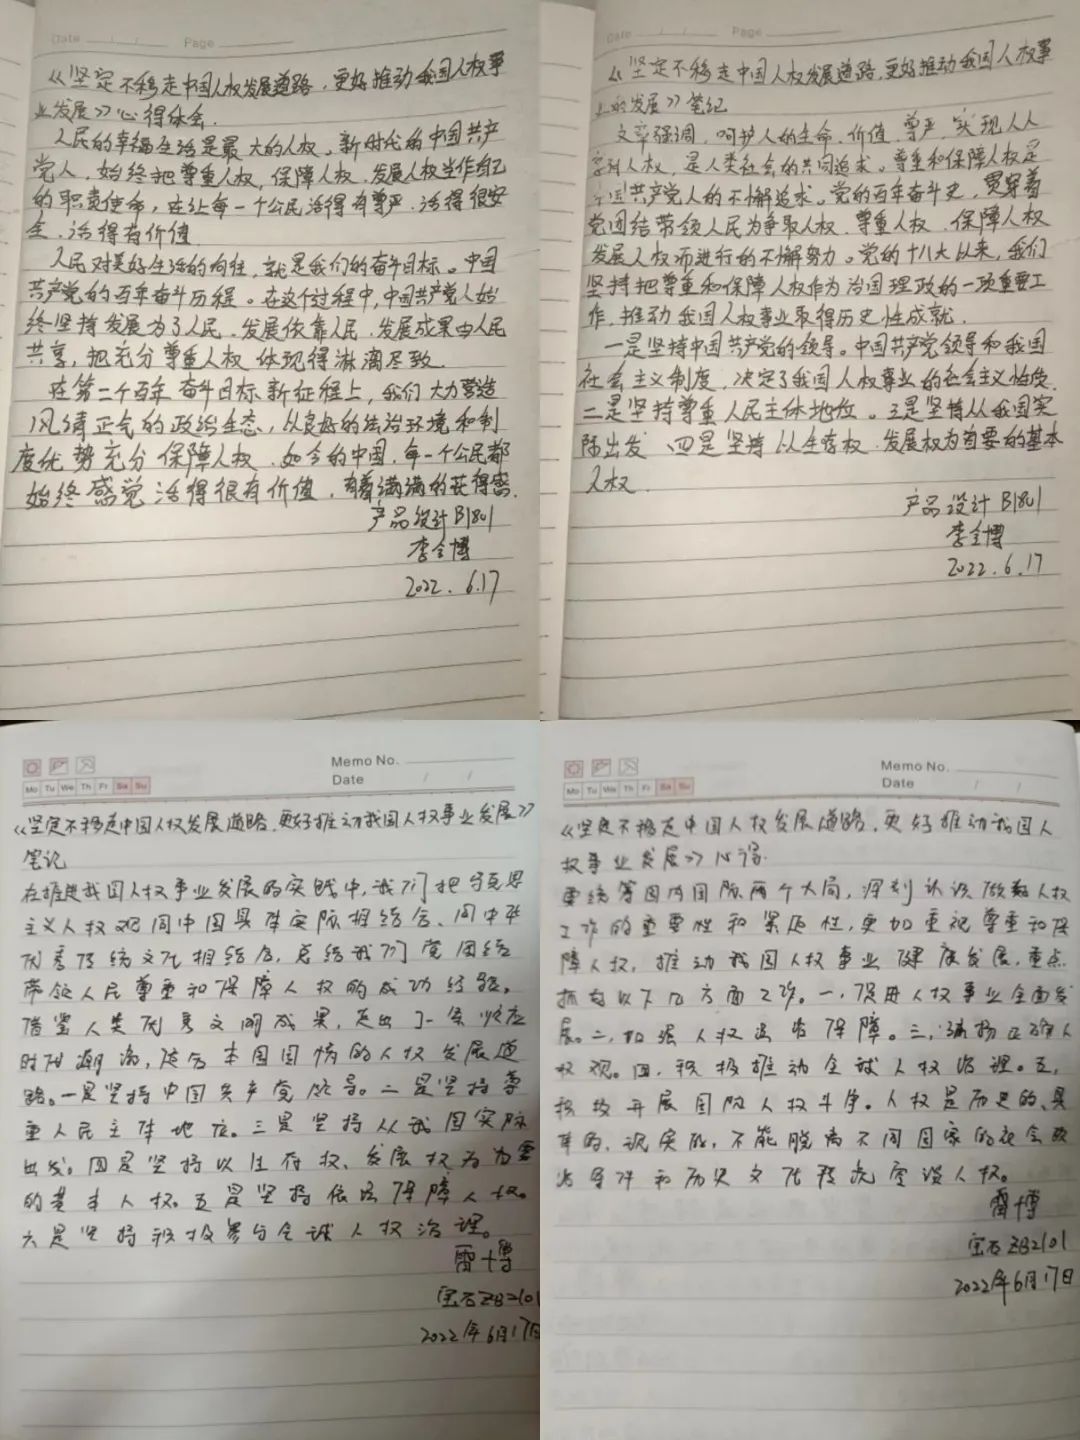 Date / / Page
《坚定不移走中国人权发展道路，更好推动我国人权事
业发展》心得体会.
人民的幸福生活是最大的人权。新时代的中国共产
党人，始终把尊重人权，保障人权、发展人权当作自己
的职责使命，在让每一个公民活得有尊严、活得很安
全、活得有价值
人民对美好生活的向往，就是我们的奋斗目标。中国
共产党的百年奋斗历程。在这个过程中，中国共产党人始
终坚持发展为了人民、发展依靠人民、发展成果由人民
共享，把充分尊重人权体现得淋漓尽致.
在第二个百年奋斗目标新征程上，我们大力营造
风清正气的政治生态，从良好的法治环境和制
度优势充分保障人权、如今的中国，每一个公民都
始终感觉活得很有价值，有着满满的获得感.
产品设计B1801
李全博
2022.6.17
Date / / Page
《坚定不移走中国人权发展道路，更好推动我国人权事
业的发展》笔记
文章强调，呵护人的生命、价值、尊严，实现人人
享有人权，是人类社会的共同追求。尊重和保障人权是
中国共产党人的不懈追求。党的百年奋斗史，贯穿着
党团结带领人民为争取人权、尊重人权、保障人权
发展人权而进行的不懈努力。党的十八大以来，我们
坚持把尊重和保障人权作为治国理政的一项重要工
作，推动我国人权事业取得历史性成就.
一是坚持中国共产党的领导。中国共产党领导和我国
社会主义制度，决定了我国人权事业的社会主义性质.
二是坚持尊重人民主体地位。三是坚持从我国实
际出发、四是坚持以生存权、发展权为首要的基本
人权.
产品设计B1801
李全博
2022.6.17
Memo No.
Mo Tu We Th Fr Sa Su Date / /
《坚定不移走中国人权发展道路，更好推动我国人权事业发展》
笔记
在推进我国人权事业发展的实践中，我们把马克思
主义人权观同中国具体实际相结合、同中华
优秀传统文化相结合，总结我们党团结
带领人民尊重和保障人权的成功经验。
借鉴人类优秀文明成果，走出了一条顺应
时代潮流，适合本国国情的人权发展道
路。一是坚持中国共产党领导。二是坚持尊
重人民主体地位。三是坚持从我国实际
出发。四是坚持以生存权、发展权为为要
的基本人权。五是坚持依法保障人权。
六是坚持积极参与全球人权治理。
雷十博
宝石ZB2101
2022年6月17日
Memo No.
Mo Tu We Th Fr Sa Su Date / /
《坚定不移走中国人权发展道路，更好推动我国人
权事业发展》心得.
要统筹国内国际两个大局，深刻认识做好人权
工作的重要性和紧迫性，更加重视尊重和保
障人权，推动我国人权事业健康发展，重点
抓好以下几方面工作。一，促进人权事业全面发
展。二，加强人权法治保障。三，弘扬正确人
权观。四，积极推动全球人权治理。五，
积极开展国际人权斗争。人权是历史的、具
体的、现实的，不能脱离不同国家的社会政
治条件和历史文化传统空谈人权。
雷十博
宝石ZB2101
2022年6月17日